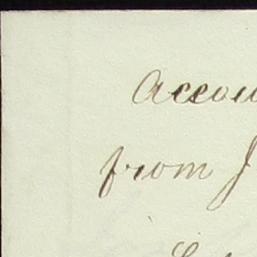 Accou
from J